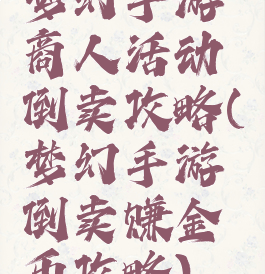 梦幻手游
商人活动
倒卖攻略(
梦幻手游
倒卖赚金
币攻略)